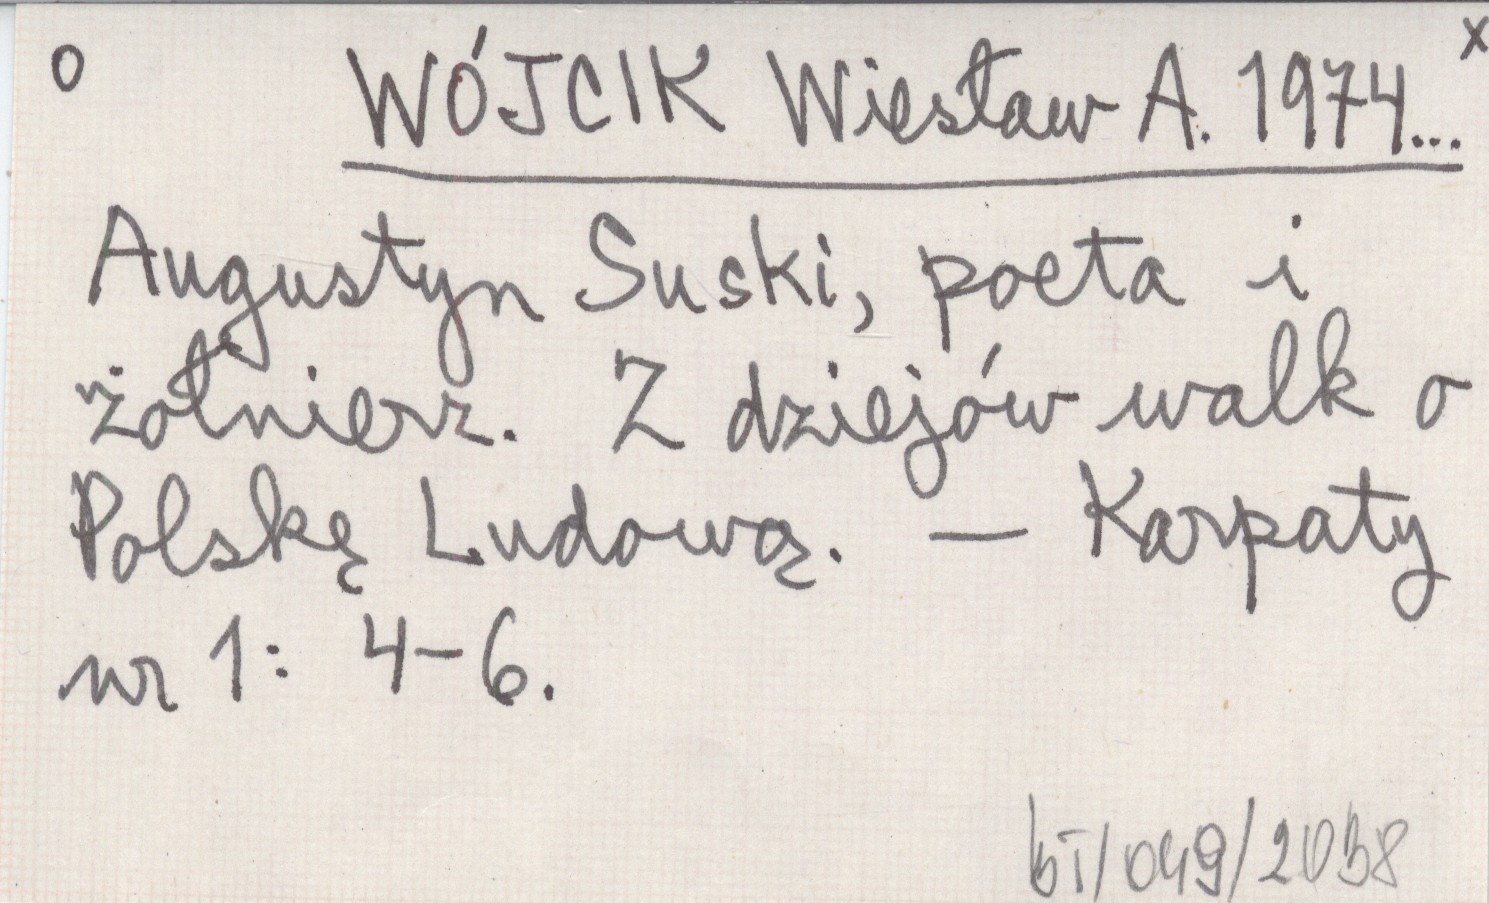 o WÓJCIK Wiesław A. 1974... x
Augustyn Suski, poeta i
żołnierz. Z dziejów walk o
Polskę Ludową. — Karpaty
nr 1: 4-6.
bT/049/2058